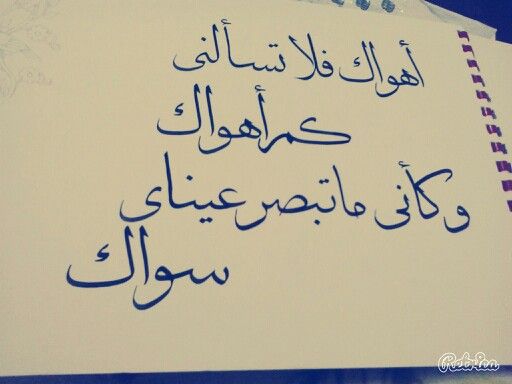 أهواك فلا تسألنى
كم أهواك
وكأنى ما تبصر عيناى
سواك
Retrica